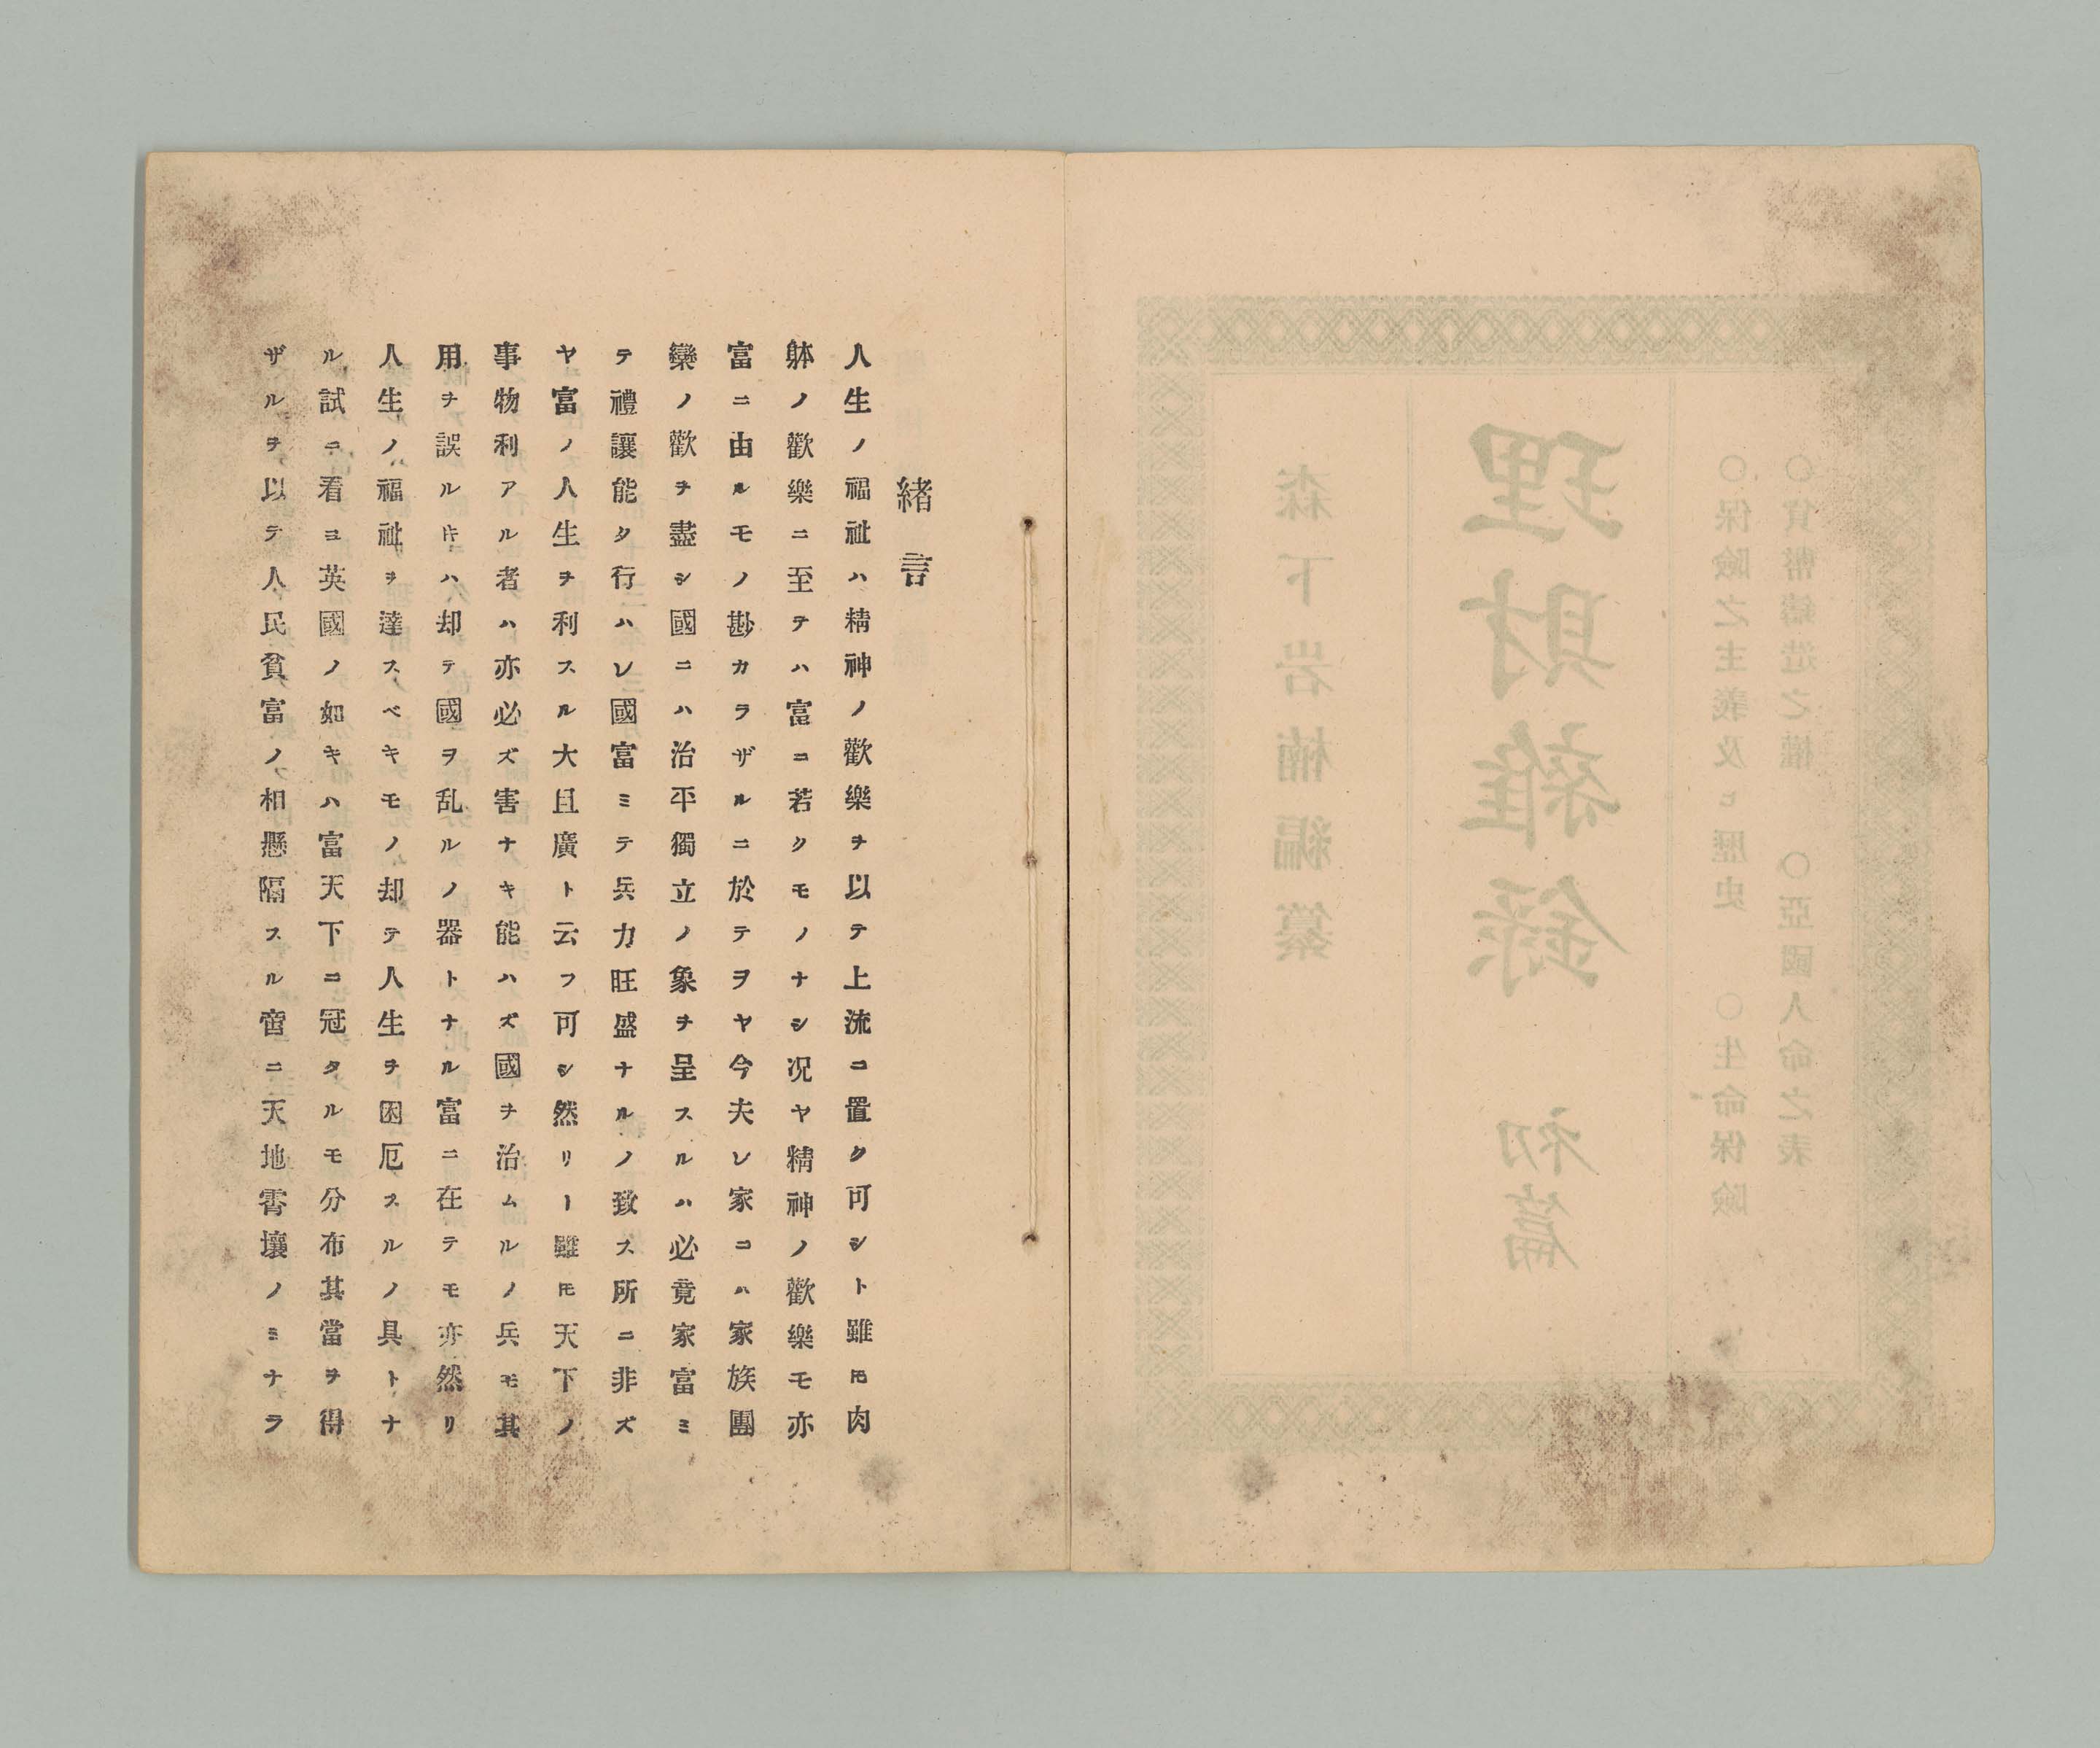 ○貨幣鑄造之權 ○亞國人命之表
○保險之主義及ヒ歴史 ○生命保險
理財雜錄 初篇
森下岩楠編纂
緒言
人生ノ福祉ハ精神ノ歡樂ヲ以テ上流ニ置ク可シト雖𪜈肉
躰ノ歡樂ニ至テハ富ニ若クモノナシ況ヤ精神ノ歡樂モ亦
富ニ由ルモノ尠カラザルニ於テヲヤ今夫レ家ニハ家族團
欒ノ歡ヲ盡シ國ニハ治平獨立ノ象ヲ呈スルハ必竟家富ミ
テ禮讓能ク行ハレ國富ミテ兵力旺盛ナルノ致ス所ニ非ズ
ヤ富ノ人生ヲ利スル大且廣ト云フ可シ然リト雖𪜈天下ノ
事物利アル者ハ亦必ズ害ナキ能ハズ國ヲ治ムルノ兵モ其
用ヲ誤ル𪜈ハ却テ國ヲ乱ルノ器トナル富ニ在テモ亦然リ
人生ノ福祉ヲ達スベキモノ却テ人生ヲ困厄スルノ具トナ
ル試ニ看ヨ英國ノ如キハ富天下ニ冠タルモ分布其當ヲ得
ザルヲ以テ人民貧富ノ相懸隔スル啻ニ天地霄壤ノミナラ